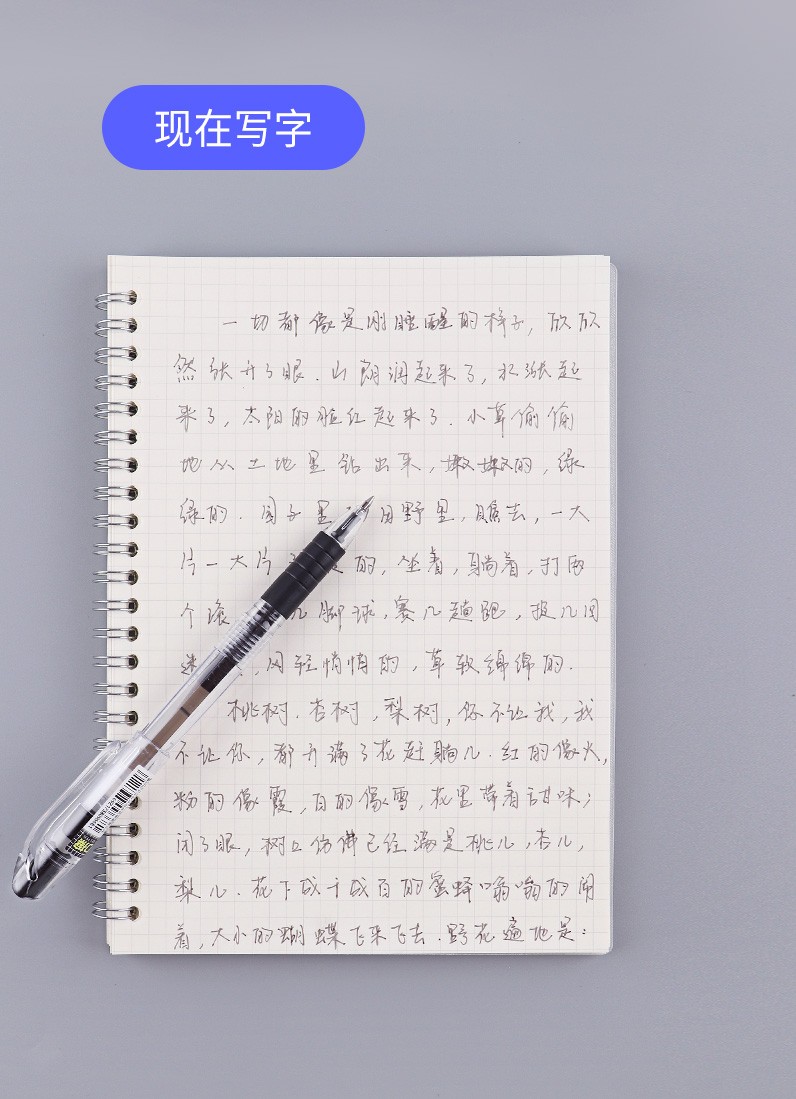 现在写字
一切都像是刚睡醒的样子，欣欣
然张开了眼．山朗润起来了，水涨起
来了，太阳的脸红起来了．小草偷偷
地从土地里钻出来，嫩嫩的，绿
绿的．园子里 田野里，瞧去，一大
片一大片 是的，坐着，躺着，打两
个滚 几脚球，赛几趟跑，捉几回
迷 ，风轻悄悄的，草软绵绵的．
桃树．杏树，梨树，你不让我，我
不让你，都开满了花赶趟儿．红的像火，
粉的像霞，白的像雪，花里带着甜味；
闭了眼，树上仿佛已经满是桃儿，杏儿，
梨儿．花下成千成百的蜜蜂嗡嗡的闹
着，大小的蝴蝶飞来飞去．野花遍地是：